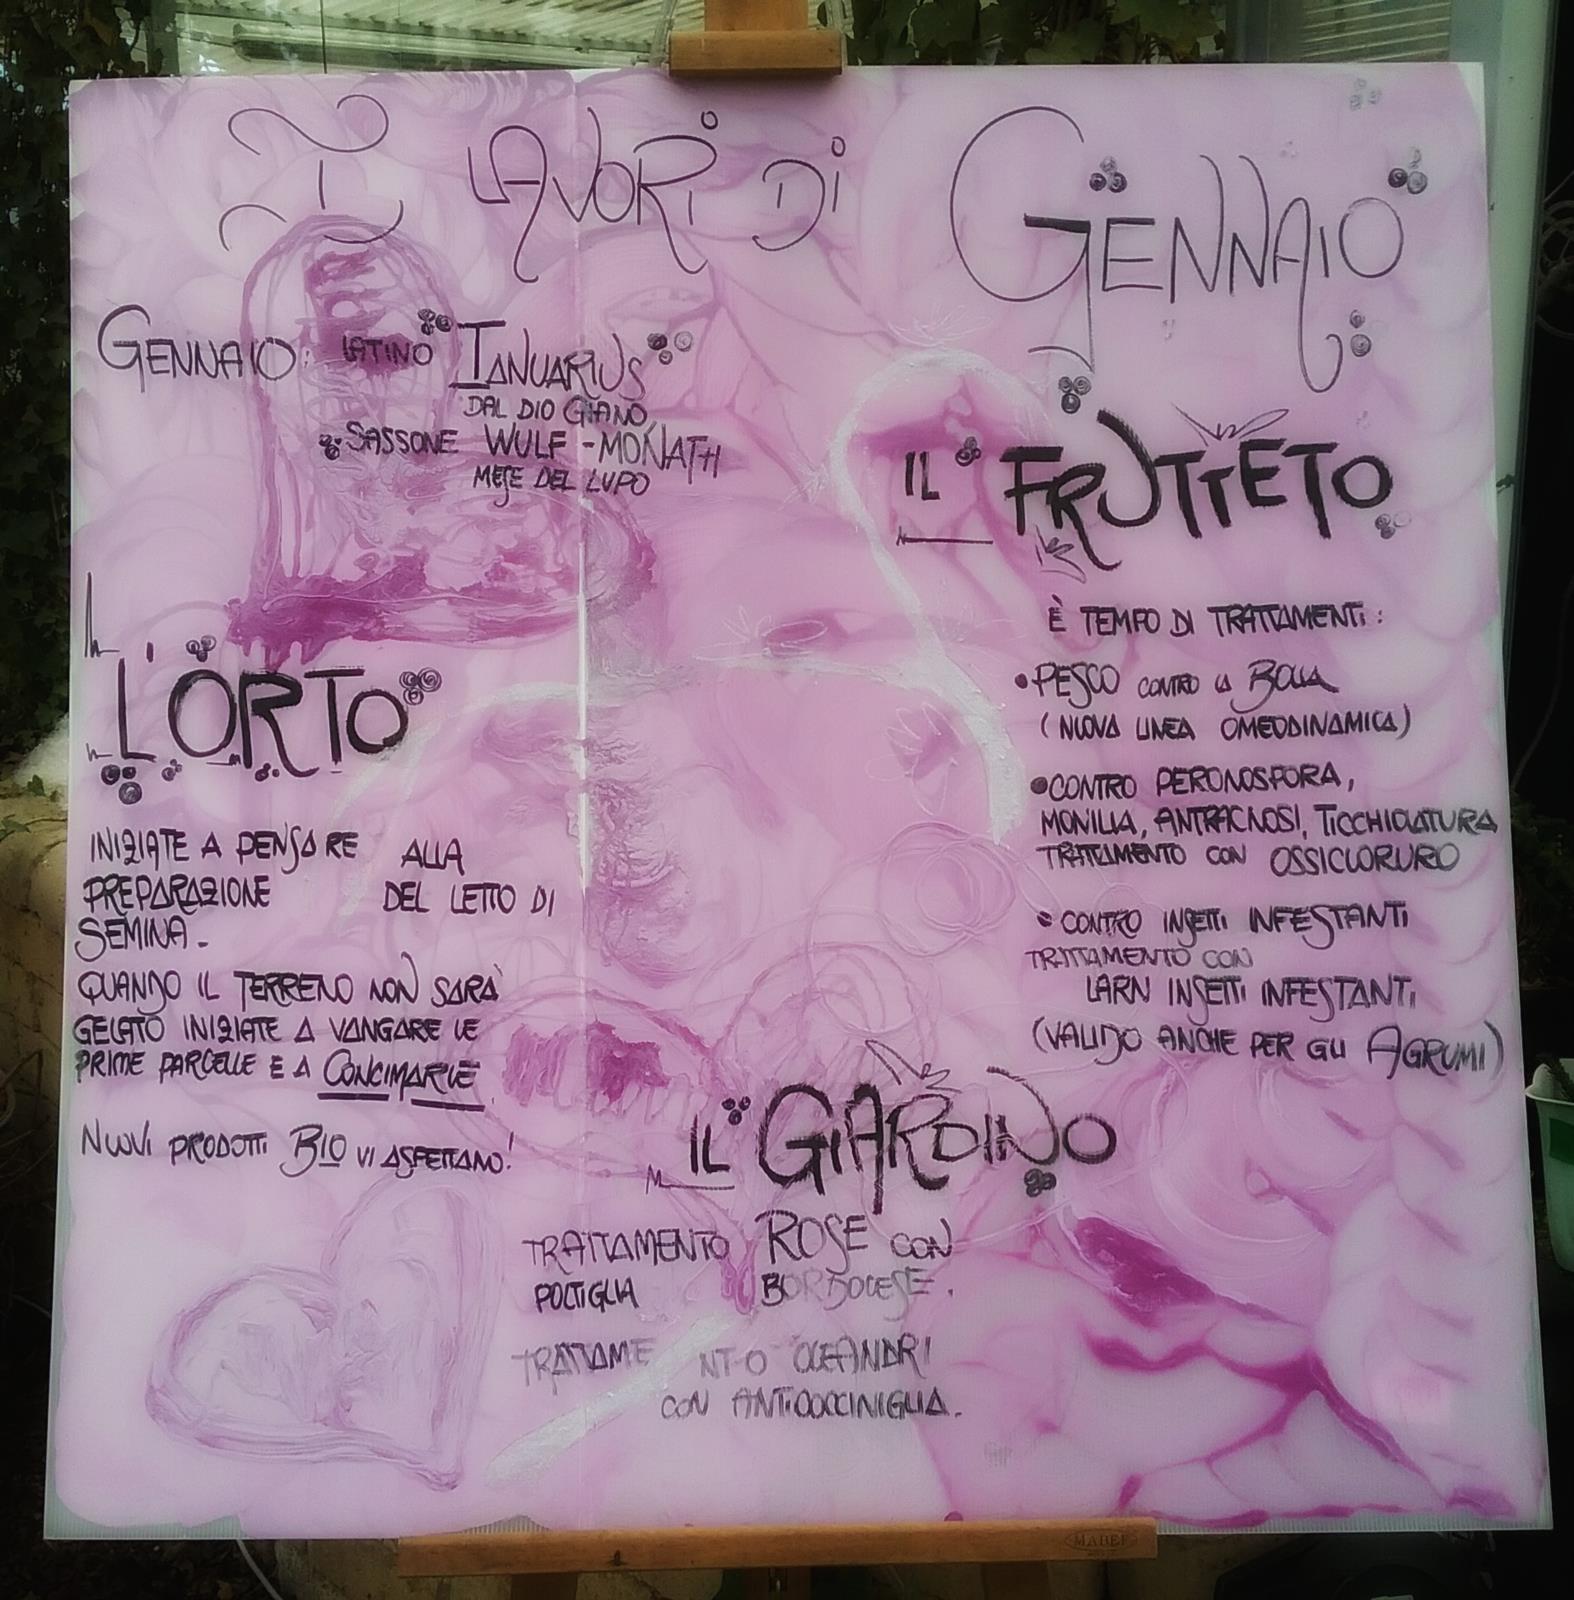 I LAVORI DI GENNAIO
GENNAIO: LATINO IANUARIUS
DAL DIO GIANO,
SASSONE WULF-MONATH
MESE DEL LUPO
L'ORTO
INIZIATE A PENSARE ALLA
PREPARAZIONE DEL LETTO DI
SEMINA.
QUANDO IL TERRENO NON SARÀ
GELATO INIZIATE A VANGARE LE
PRIME PARCELLE E A CONCIMARLE.
NUOVI PRODOTTI BIO VI ASPETTANO!
IL FRUTTETO
È TEMPO DI TRATTAMENTI:
• PESCO CONTRO LA BOLLA
(NUOVA LINEA OMEODINAMICA)
• CONTRO PERONOSPORA,
MONILIA, ANTRACNOSI, TICCHIOLATURA
TRATTAMENTO CON OSSICLORURO
• CONTRO INSETTI INFESTANTI
TRATTAMENTO CON
LARN INSETTI INFESTANTI
(VALIDO ANCHE PER GLI AGRUMI)
IL GIARDINO
TRATTAMENTO ROSE CON
POLTIGLIA BORDOLESE.
TRATTAMENTO OLEANDRI
CON ANTICOCCINIGLIA.
MABEF